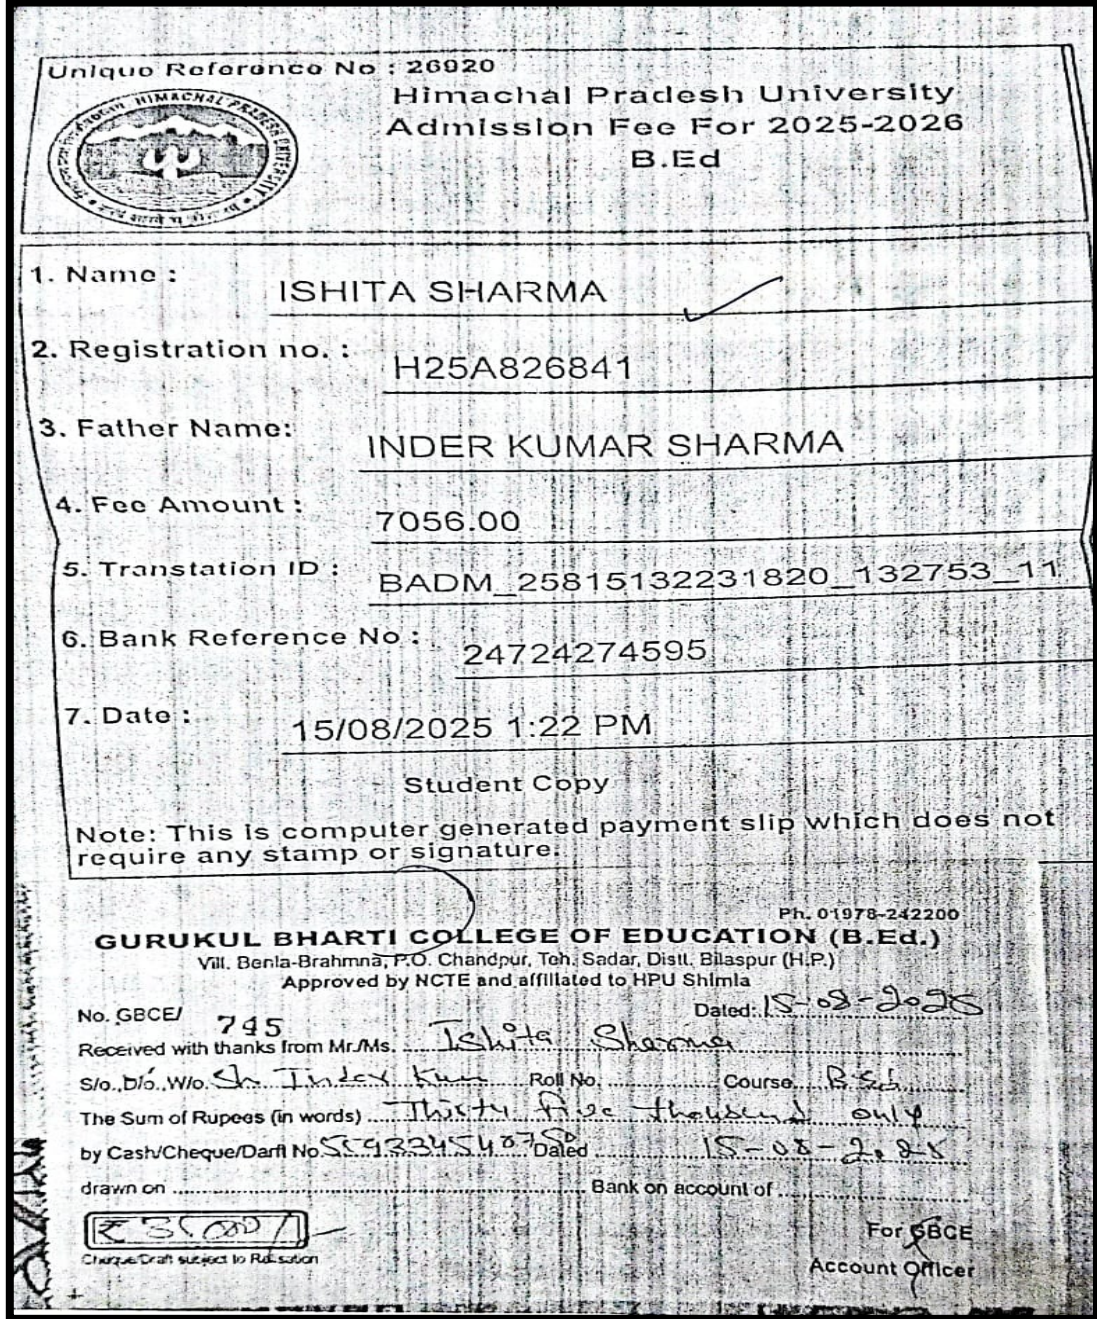 Unique Reference No : 26920
Himachal Pradesh University
Admission Fee For 2025-2026
B.Ed
HIMACHAL PRADESH UNIVERSITY
1. Name :
ISHITA SHARMA
2. Registration no. :
H25A826841
3. Father Name:
INDER KUMAR SHARMA
4. Fee Amount :
7056.00
5. Transtation ID :
BADM_25815132231820_132753_11
6. Bank Reference No :
24724274595
7. Date :
15/08/2025 1:22 PM
Student Copy
Note: This is computer generated payment slip which does not
require any stamp or signature.
Ph. 01978-242200
GURUKUL BHARTI COLLEGE OF EDUCATION (B.Ed.)
Vill. Benla-Brahmna, P.O. Chandpur, Teh. Sadar, Distt. Bilaspur (H.P.)
Approved by NCTE and affiliated to HPU Shimla
No. GBCE/ 745 Dated: 15-08-2025
Received with thanks from Mr./Ms. Ishita Sharma
S/o. D/o. W/o. Sh. Inder Kum Roll No. Course
The Sum of Rupees (in words) Thirty five thousand only
by Cash/Cheque/Darft No. Dated 15-08-2025
drawn on Bank on account of
₹ 35000/-
Cheque/Draft subject to Relisation
For GBCE
Account Officer